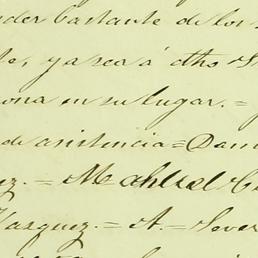 der bastante de los
te, ya sea á dhos
ona en su lugar. =
de asistencia = Dam
ez. =
Vasquez. = A. = Sever